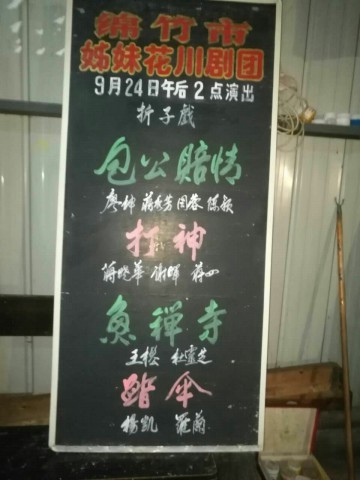 绵竹市
姊妹花川剧团
9月24日午后2点演出
折子戏
包公赔情
廖坤 蒋秀芳 周蓉 陈敏
打神
蒋晓华 谢晖 蒋四
魚禅寺
王樱 杜灵芝
踏伞
杨凯 羅蘭